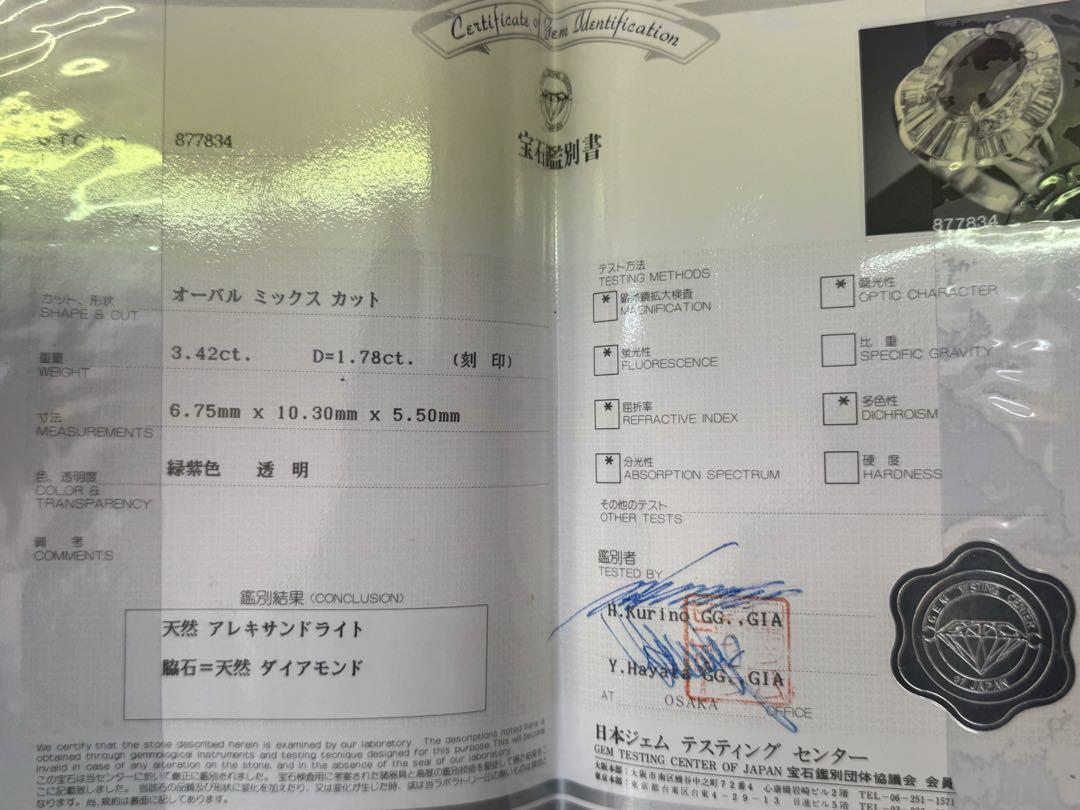 Certificate of Gem Identification
宝石鑑別書
G.T.C. NO. 877834
877834
カット、形状 オーバル ミックス カット
SHAPE & CUT
重量 3.42ct. D=1.78ct. (刻 印)
WEIGHT
寸法 6.75mm x 10.30mm x 5.50mm
MEASUREMENTS
色、透明度 緑紫色 透 明
COLOR &
TRANSPARENCY
備 考
COMMENTS
鑑別結果 (CONCLUSION)
天然 アレキサンドライト
脇石=天然 ダイアモンド
We certify that the stone described herein is examined by our laboratory. The descriptions noted here is
obtained through gemmological instruments and testing tecnique designed for this purpose. This will become
invalid in case of any alteration on the stone, and in the absence of the seal of our laboratory.
この宝石は当センターに於いて厳正に鑑別されました。宝石検査用に考案された諸器具と高度の鑑別技術を駆使して得た結果を
ここに記載致しました。当該石の品質及び形状に変化を加えたり、又は変化が生じた時、
なります。尚、規約は裏面に記してあります。
テスト方法
TESTING METHODS
* 顕微鏡拡大検査
MAGNIFICATION
* 蛍光性
FLUORESCENCE
* 屈折率
REFRACTIVE INDEX
* 分光性
ABSORPTION SPECTRUM
* 偏光性
OPTIC CHARACTER
比 重
SPECIFIC GRAVITY
* 多色性
DICHROISM
硬 度
HARDNESS
その他のテスト
OTHER TESTS
鑑別者
TESTED BY
H.Kurino GG.,GIA
Y.Hayata GG.,GIA
AT OSAKA OFFICE
GEM TESTING CENTER
of JAPAN
日本ジェム テスティング センター
GEM TESTING CENTER OF JAPAN 宝石鑑別団体協議会 会員
大阪本部:大阪市南区鰻谷中之町72番4 心斎橋岩崎ビル2階 TEL-06-251-1571
東京本部:東京都台東区台東4-29-13 日進ビル5階